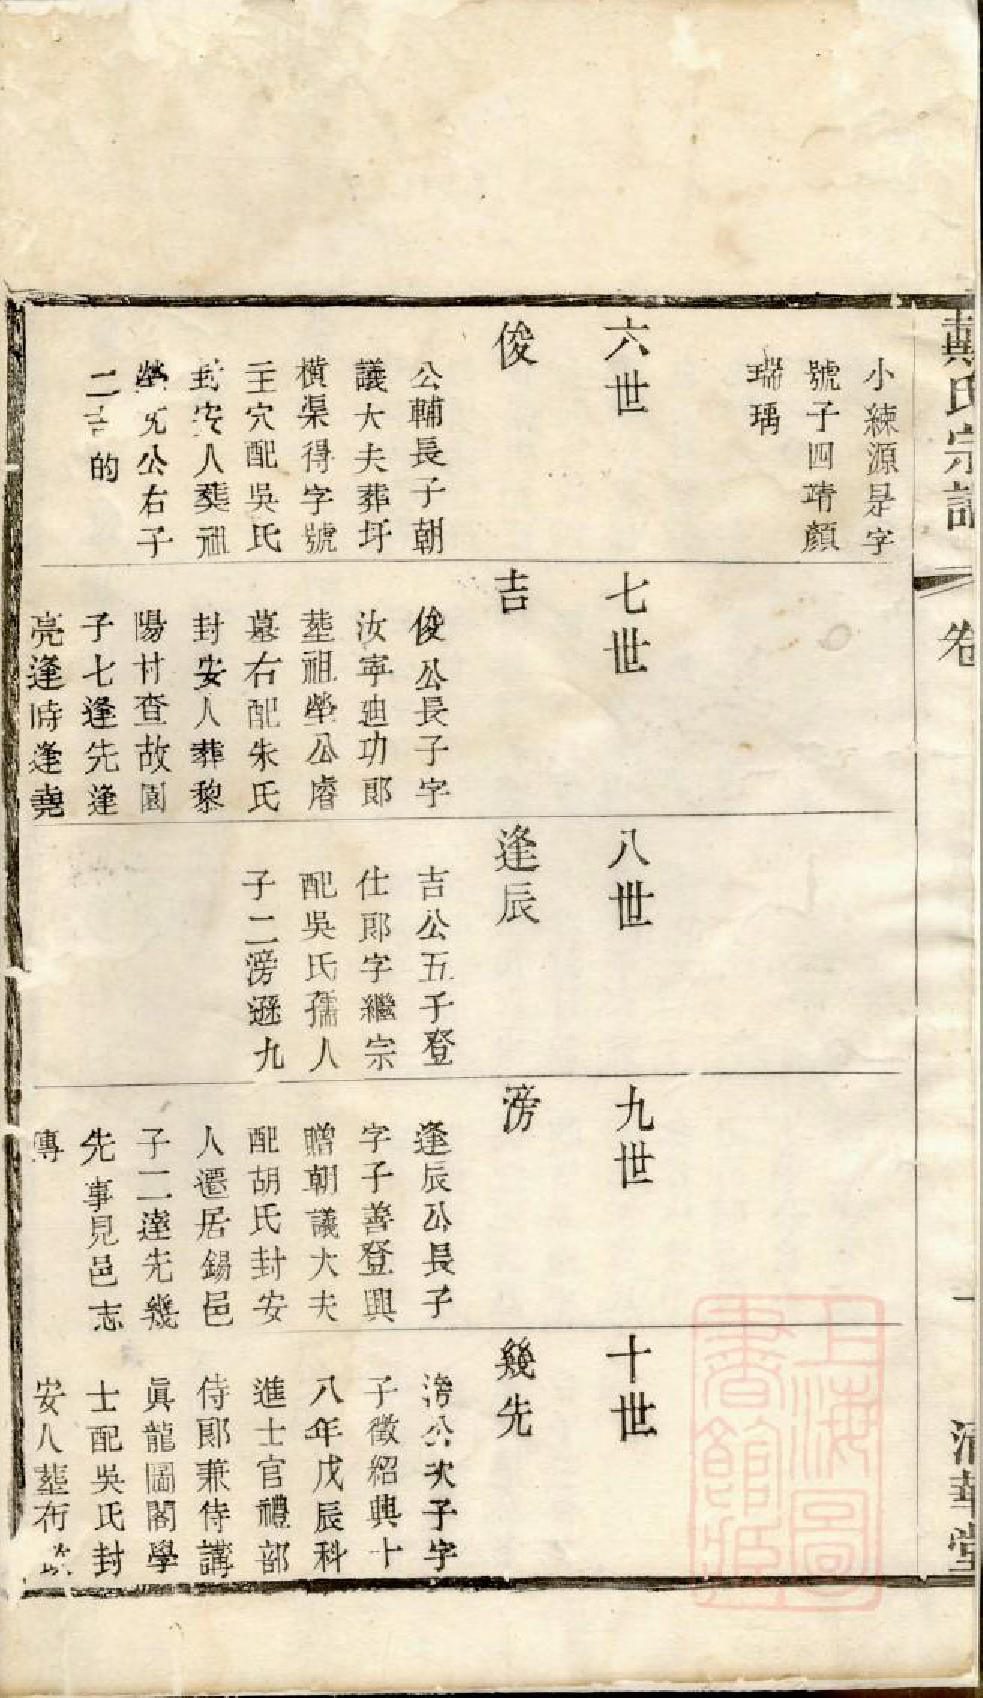 戴氏宗譜
卷
一
清華堂
小練源是字
號子四靖顏
瑞瑀
六世
俊
公輔長子朝
議大夫葬圩
橫渠得字號
王穴配吳氏
封安人葬祖
塋允公右子
二吉的
七世
吉
俊公長子字
汝寧迪功郎
塟祖塋公廥
墓右配朱氏
封安人葬黎
陽村查故園
子七逢先逢
亮逢時逢堯
八世
逢辰
吉公五子登
仕郎字繼宗
配吳氏孺人
子二滂遜九
九世
滂
逢辰公長子
字子善登興
贈朝議大夫
配胡氏封安
人遷居錫邑
子二達先幾
先事見邑志
傳
十世
幾先
滂公次子字
子徵紹興十
八年戊辰科
進士官禮部
侍郎兼侍講
眞龍圖閣學
士配吳氏封
安人塟布
上海圖
書館藏